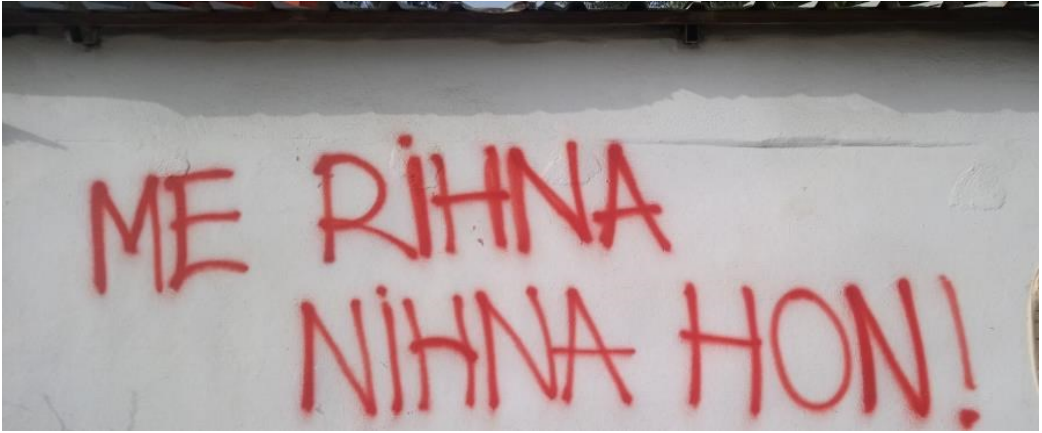 ME RiHNA
NiHNA HON!